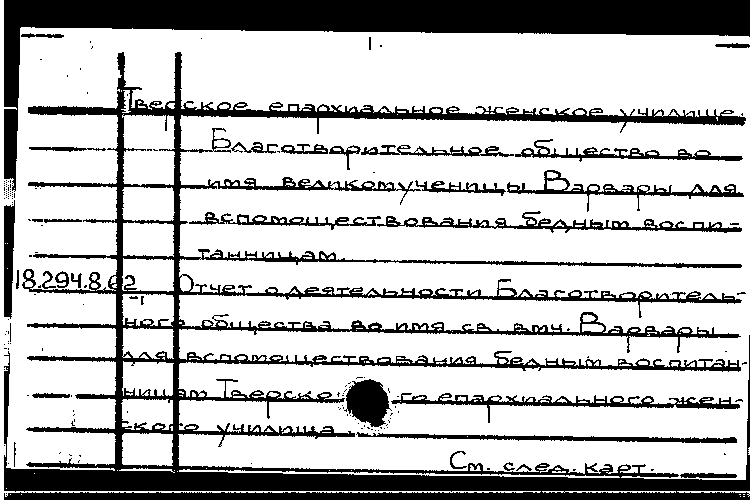 Тверское епархиальное женское училище.
Благотворительное общество во
имя великомученицы Варвары для
вспомоществования бедным воспи-
танницам.
18.294.8.62 Отчет о деятельности Благотворитель-
-1
ного общества во имя св. вмч. Варвары
для вспомоществования бедным воспитан-
ницам Тверского епархиального жен-
ского училища.
См. след. карт.